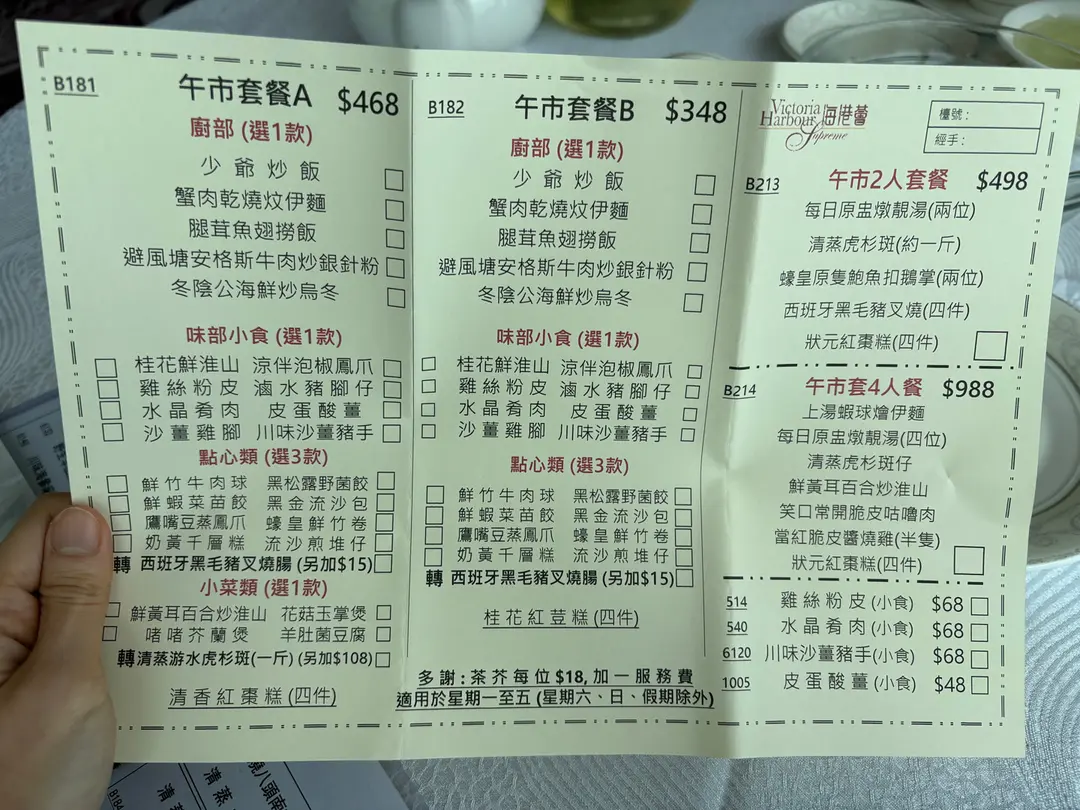 B181
午市套餐A $468
廚部 (選1款)
少爺炒飯
蟹肉乾燒炆伊麵
腿茸魚翅撈飯
避風塘安格斯牛肉炒銀針粉
冬陰公海鮮炒烏冬
味部小食 (選1款)
桂花鮮淮山 涼伴泡椒鳳爪
雞絲粉皮 滷水豬腳仔
水晶肴肉 皮蛋酸薑
沙薑雞腳 川味沙薑豬手
點心類 (選3款)
鮮竹牛肉球 黑松露野菌餃
鮮蝦菜苗餃 黑金流沙包
鷹嘴豆蒸鳳爪 蠔皇鮮竹卷
奶黃千層糕 流沙煎堆仔
轉 西班牙黑毛豬叉燒腸 (另加$15)
小菜類 (選1款)
鮮黃耳百合炒淮山 花菇玉掌煲
啫啫芥蘭煲 羊肚菌豆腐
轉清蒸游水虎杉斑(一斤) (另加$108)
清香紅棗糕 (四件)
B182
午市套餐B $348
廚部 (選1款)
少爺炒飯
蟹肉乾燒炆伊麵
腿茸魚翅撈飯
避風塘安格斯牛肉炒銀針粉
冬陰公海鮮炒烏冬
味部小食 (選1款)
桂花鮮淮山 涼伴泡椒鳳爪
雞絲粉皮 滷水豬腳仔
水晶肴肉 皮蛋酸薑
沙薑雞腳 川味沙薑豬手
點心類 (選3款)
鮮竹牛肉球 黑松露野菌餃
鮮蝦菜苗餃 黑金流沙包
鷹嘴豆蒸鳳爪 蠔皇鮮竹卷
奶黃千層糕 流沙煎堆仔
轉 西班牙黑毛豬叉燒腸 (另加$15)
桂花紅荳糕 (四件)
多謝:茶芥每位 $18, 加一服務費
適用於星期一至五 (星期六、日、假期除外)
Victoria
Harbour 海港薈
Supreme
檯號:
經手:
B213 午市2人套餐 $498
每日原盅燉靚湯(兩位)
清蒸虎杉斑(約一斤)
蠔皇原隻鮑魚扣鵝掌(兩位)
西班牙黑毛豬叉燒(四件)
狀元紅棗糕(四件)
B214 午市套4人餐 $988
上湯蝦球燴伊麵
每日原盅燉靚湯(四位)
清蒸虎杉斑仔
鮮黃耳百合炒淮山
笑口常開脆皮咕嚕肉
當紅脆皮醬燒雞(半隻)
狀元紅棗糕(四件)
514 雞絲粉皮 (小食) $68
540 水晶肴肉 (小食) $68
6120 川味沙薑豬手(小食) $68
1005 皮蛋酸薑 (小食) $48
清蒸
清蒸
B184